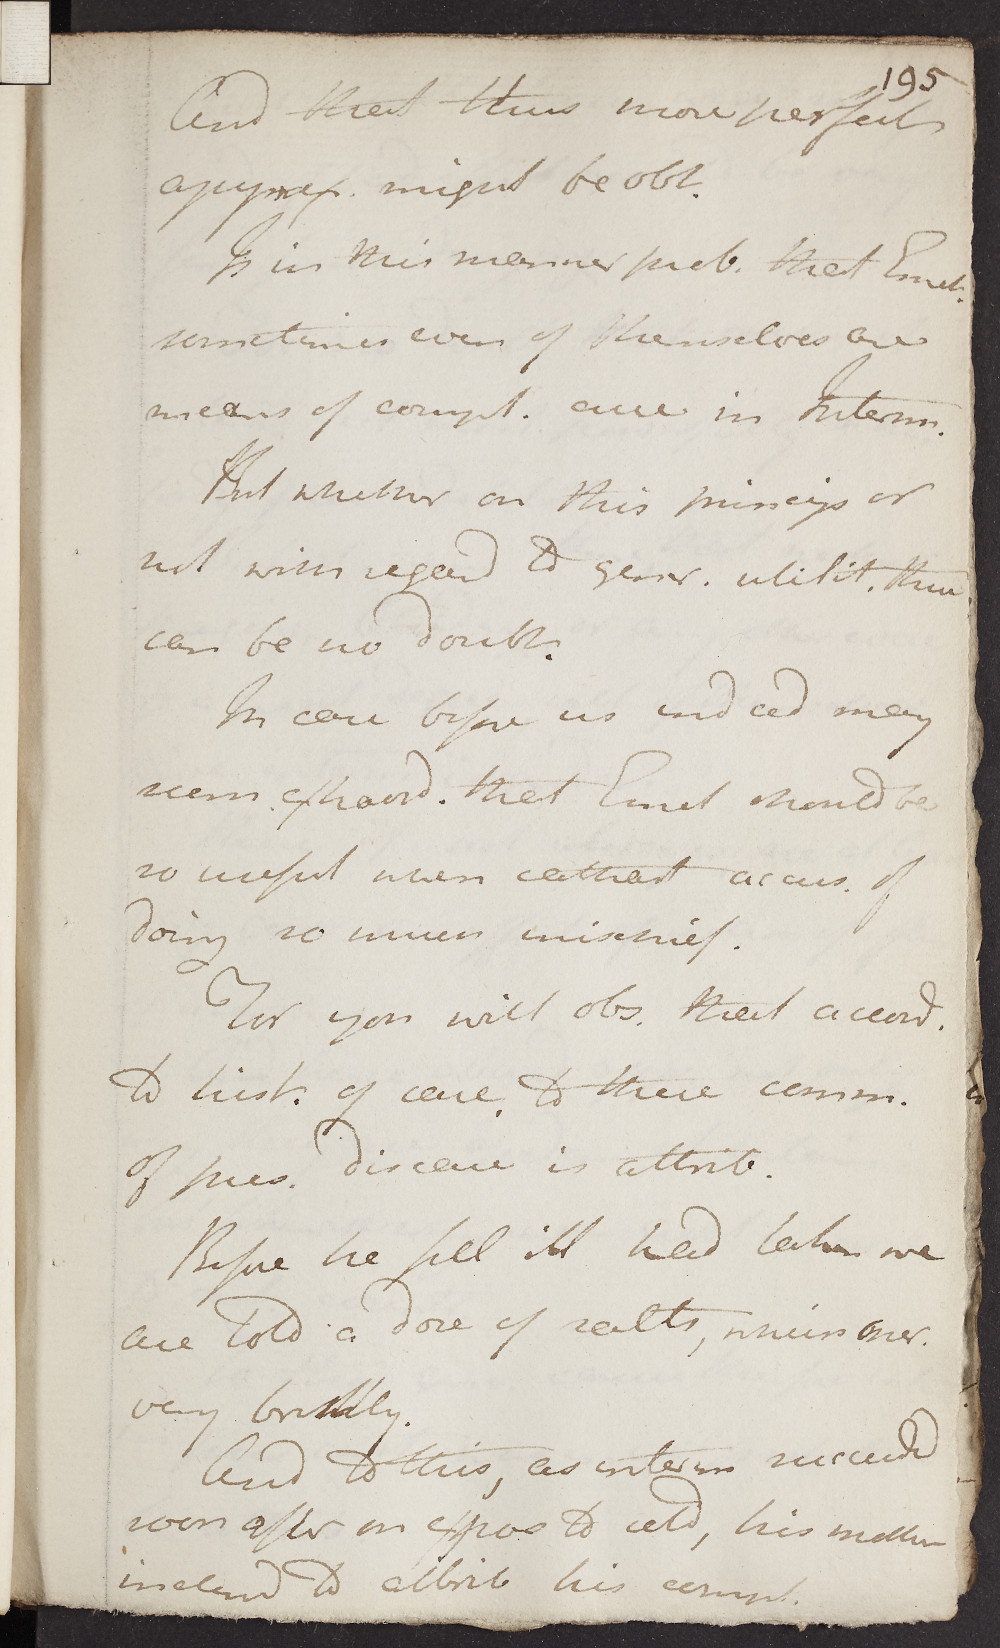 195
And that thus more perfect
apyrex. might be obt.
Is in this manner prob. that Emet.
sometimes even of themselves are
means of compl. cure in Interm.
But whether on this princip or
not with regard to gener. utilit. there
can be no doubt.
In case before us indeed may
seem extraord. that Emet should be
so useful when cathart accus. of
doing so much mischief.
For you will obs. that accord.
to hist. of case, to these comm.
of pres. disease is attrib.
Before he fell ill had taken we
are told a dose of salts, which oper.
very briskly.
And to this, as interm succeeded
soon after on expos to cold, his mother
inclined to attrib his compl.